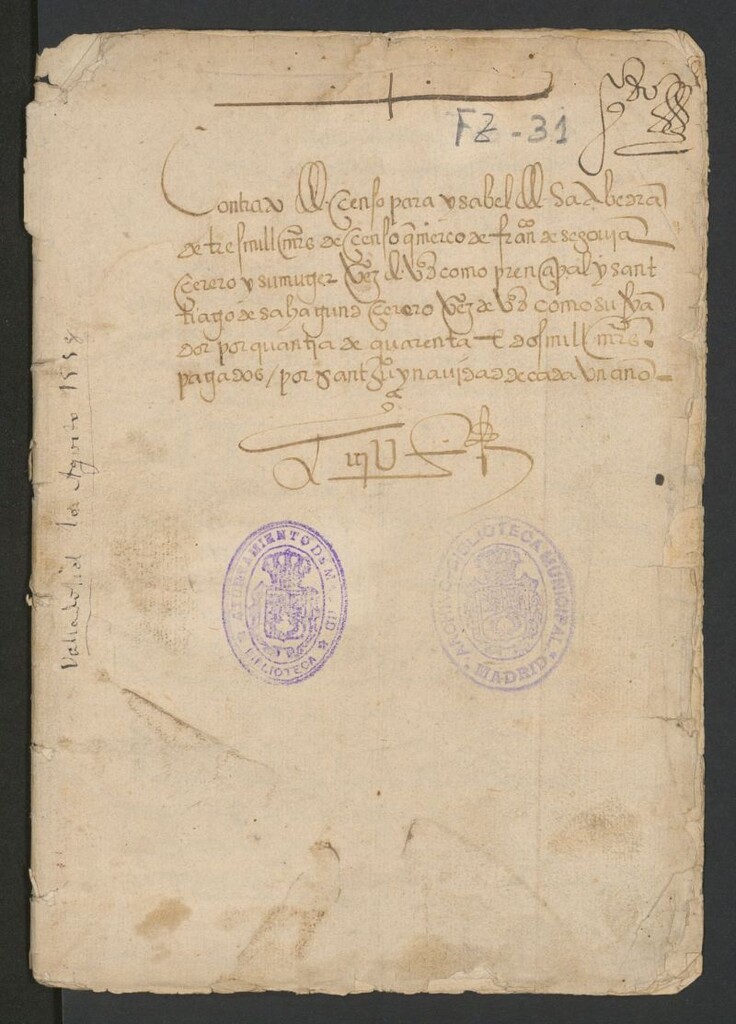 FZ-31
Contrato de Censo para ysabel de Saabedra
de tres mill mrs de Censo q merco de fran.co de segovia
Cerero y su muger vz.o de Vd como prencipal y sant
tiago de sahagund Cerero vz.o de Vd como su fia
dor por quantia de quarenta e dos mill mrs.
pagados / por sant Ju.o y navidad de cada un año
Valladolid Agosto 1558
AYUNTAMIENTO DE MADRID
BIBLIOTECA
BIBLIOTECA MUNICIPAL
MADRID